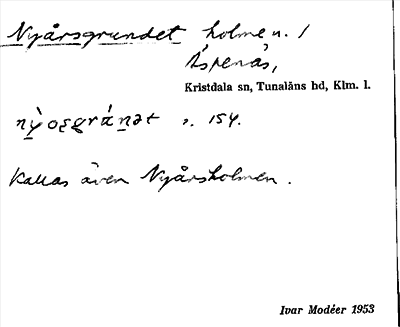 Nyårsgrundet holme n. /
Åspenäs,
Kristdala sn, Tunaläns hd, Klm. l.
s. 154.
Kallas även Nyårsholmen.
Ivar Modéer 1953